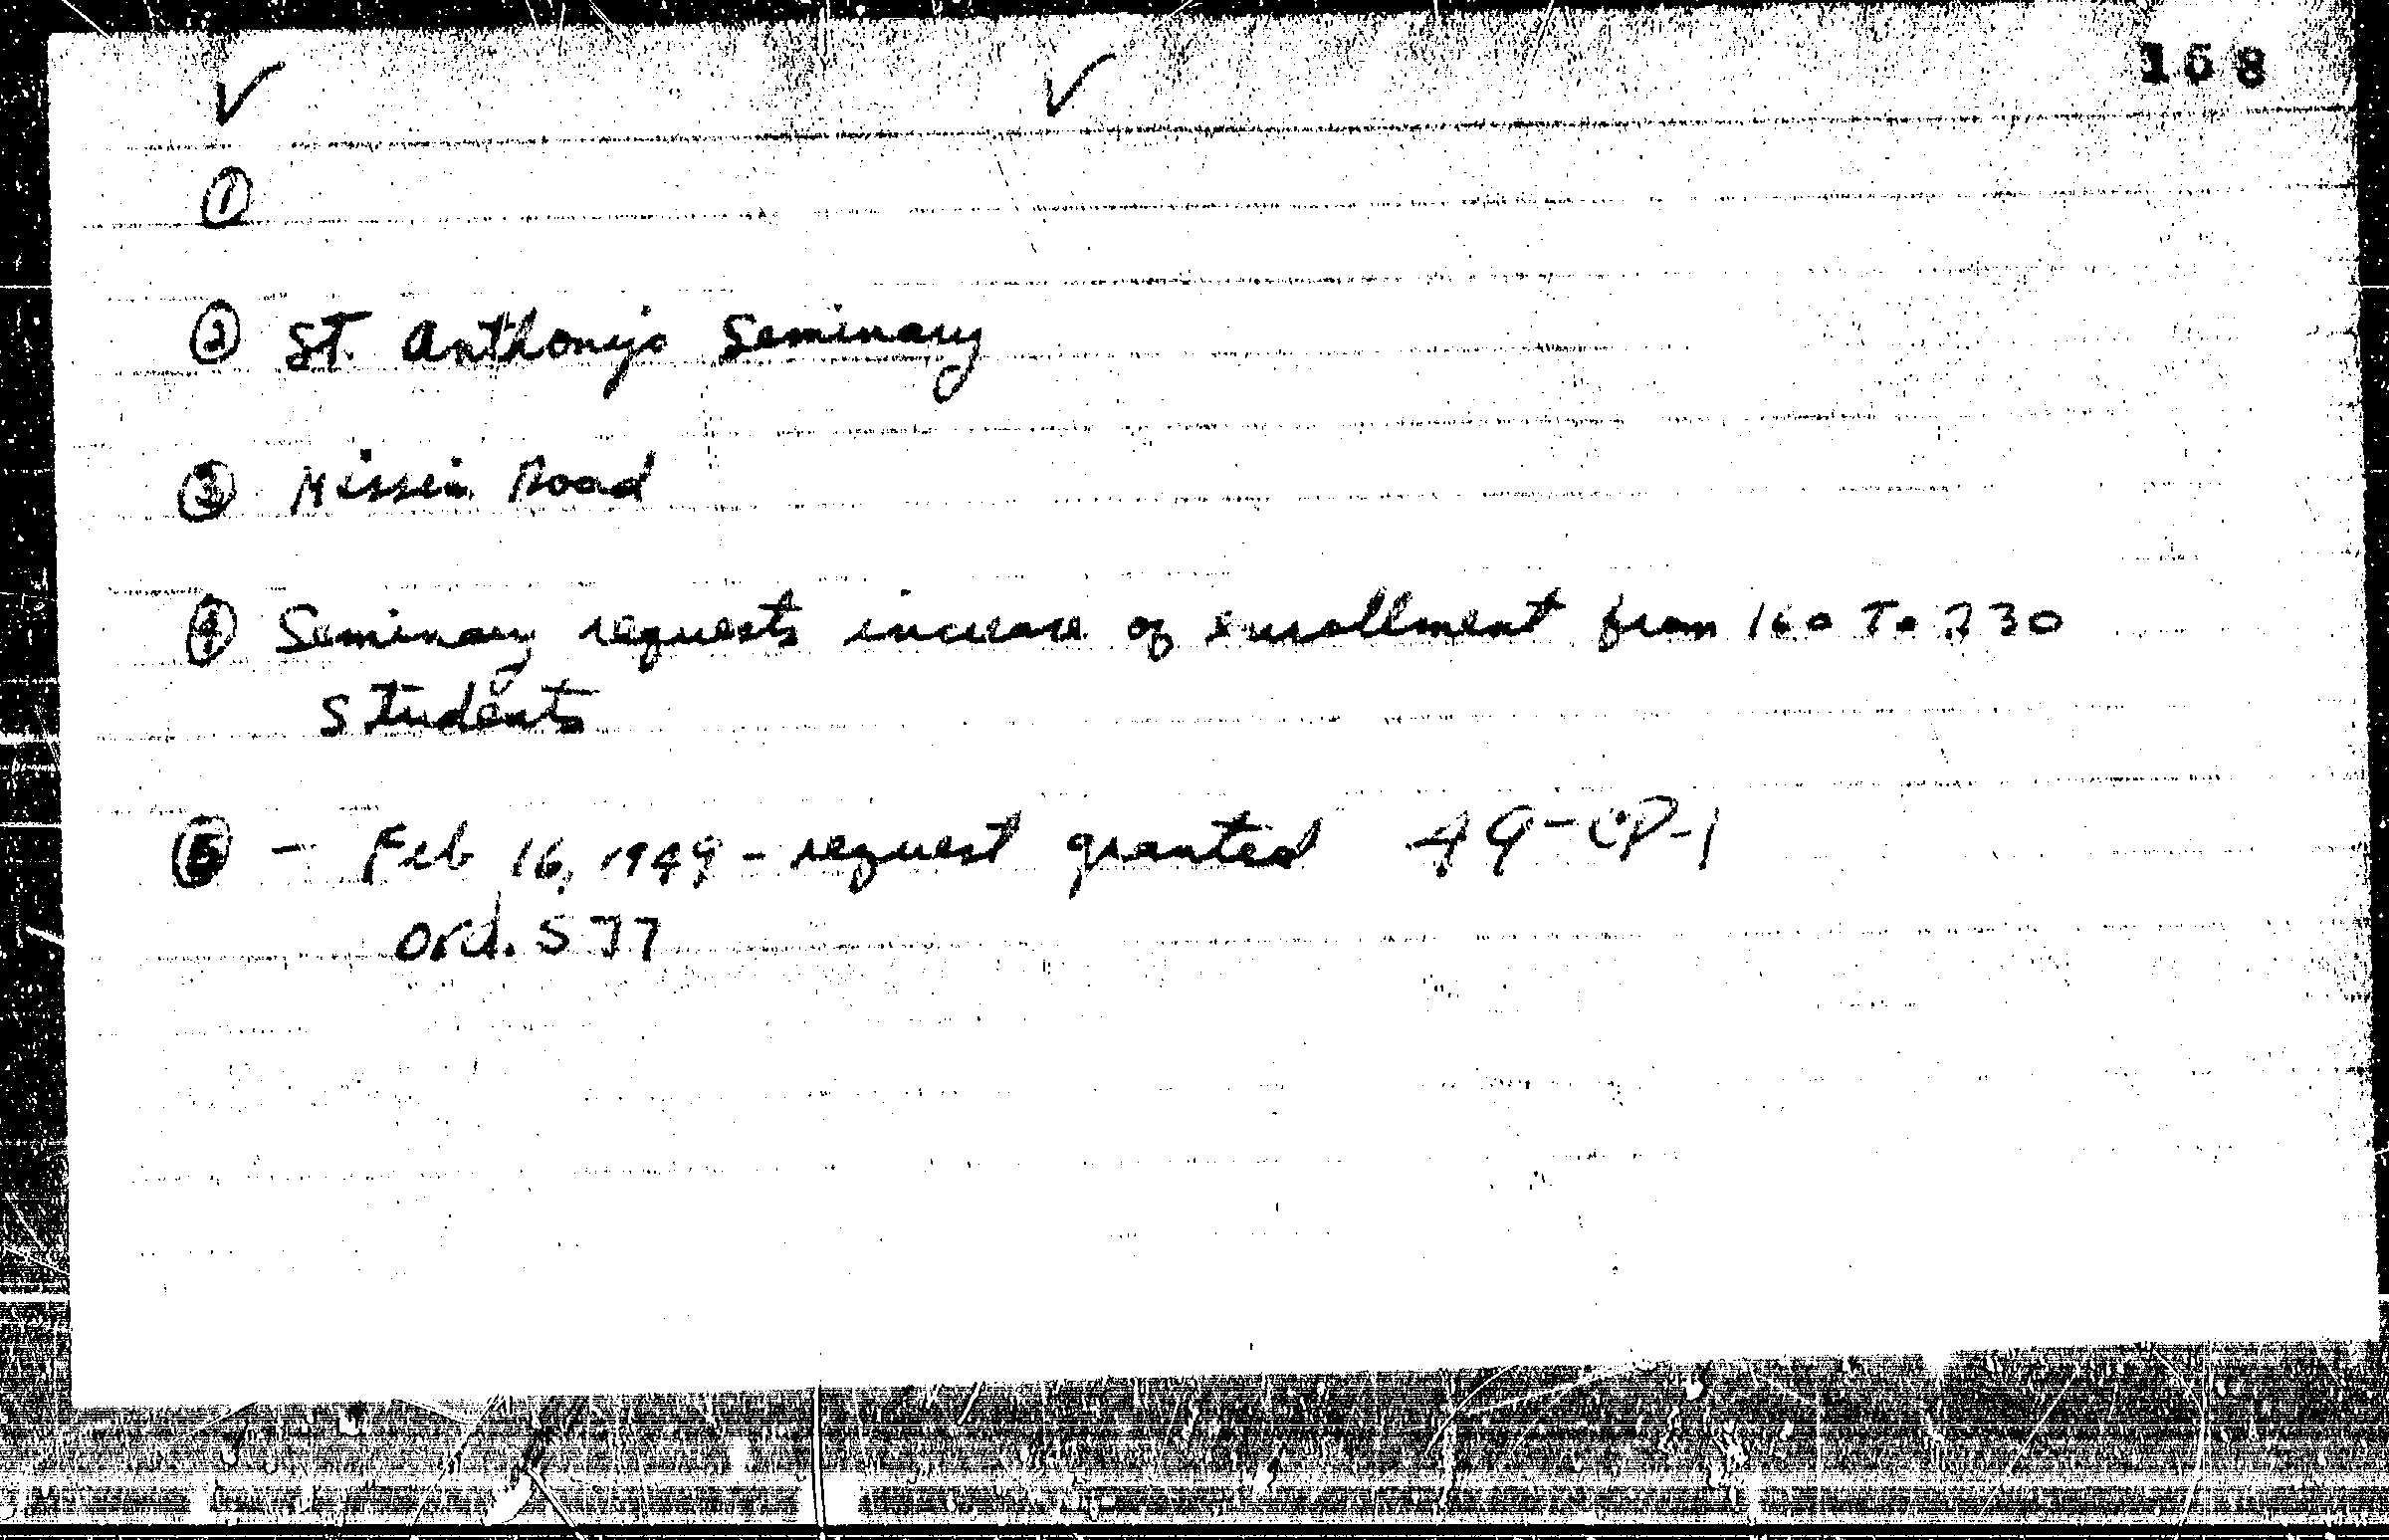 168
①
② St. Anthony's Seminary
③ Mission Road
④ Seminary requests increase of enrollment from 160 To 230
Students
⑤ - Feb 16, 1949 - request granted 49-CP-1
Ord. 577